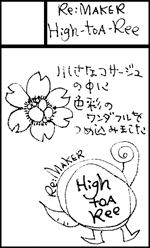 Re:MAKER
High-toA-Ree
小さなコサージュ
の中に
色彩の
ワンダフルを
つめ込みました
Re:MAKER
High
toA
Ree